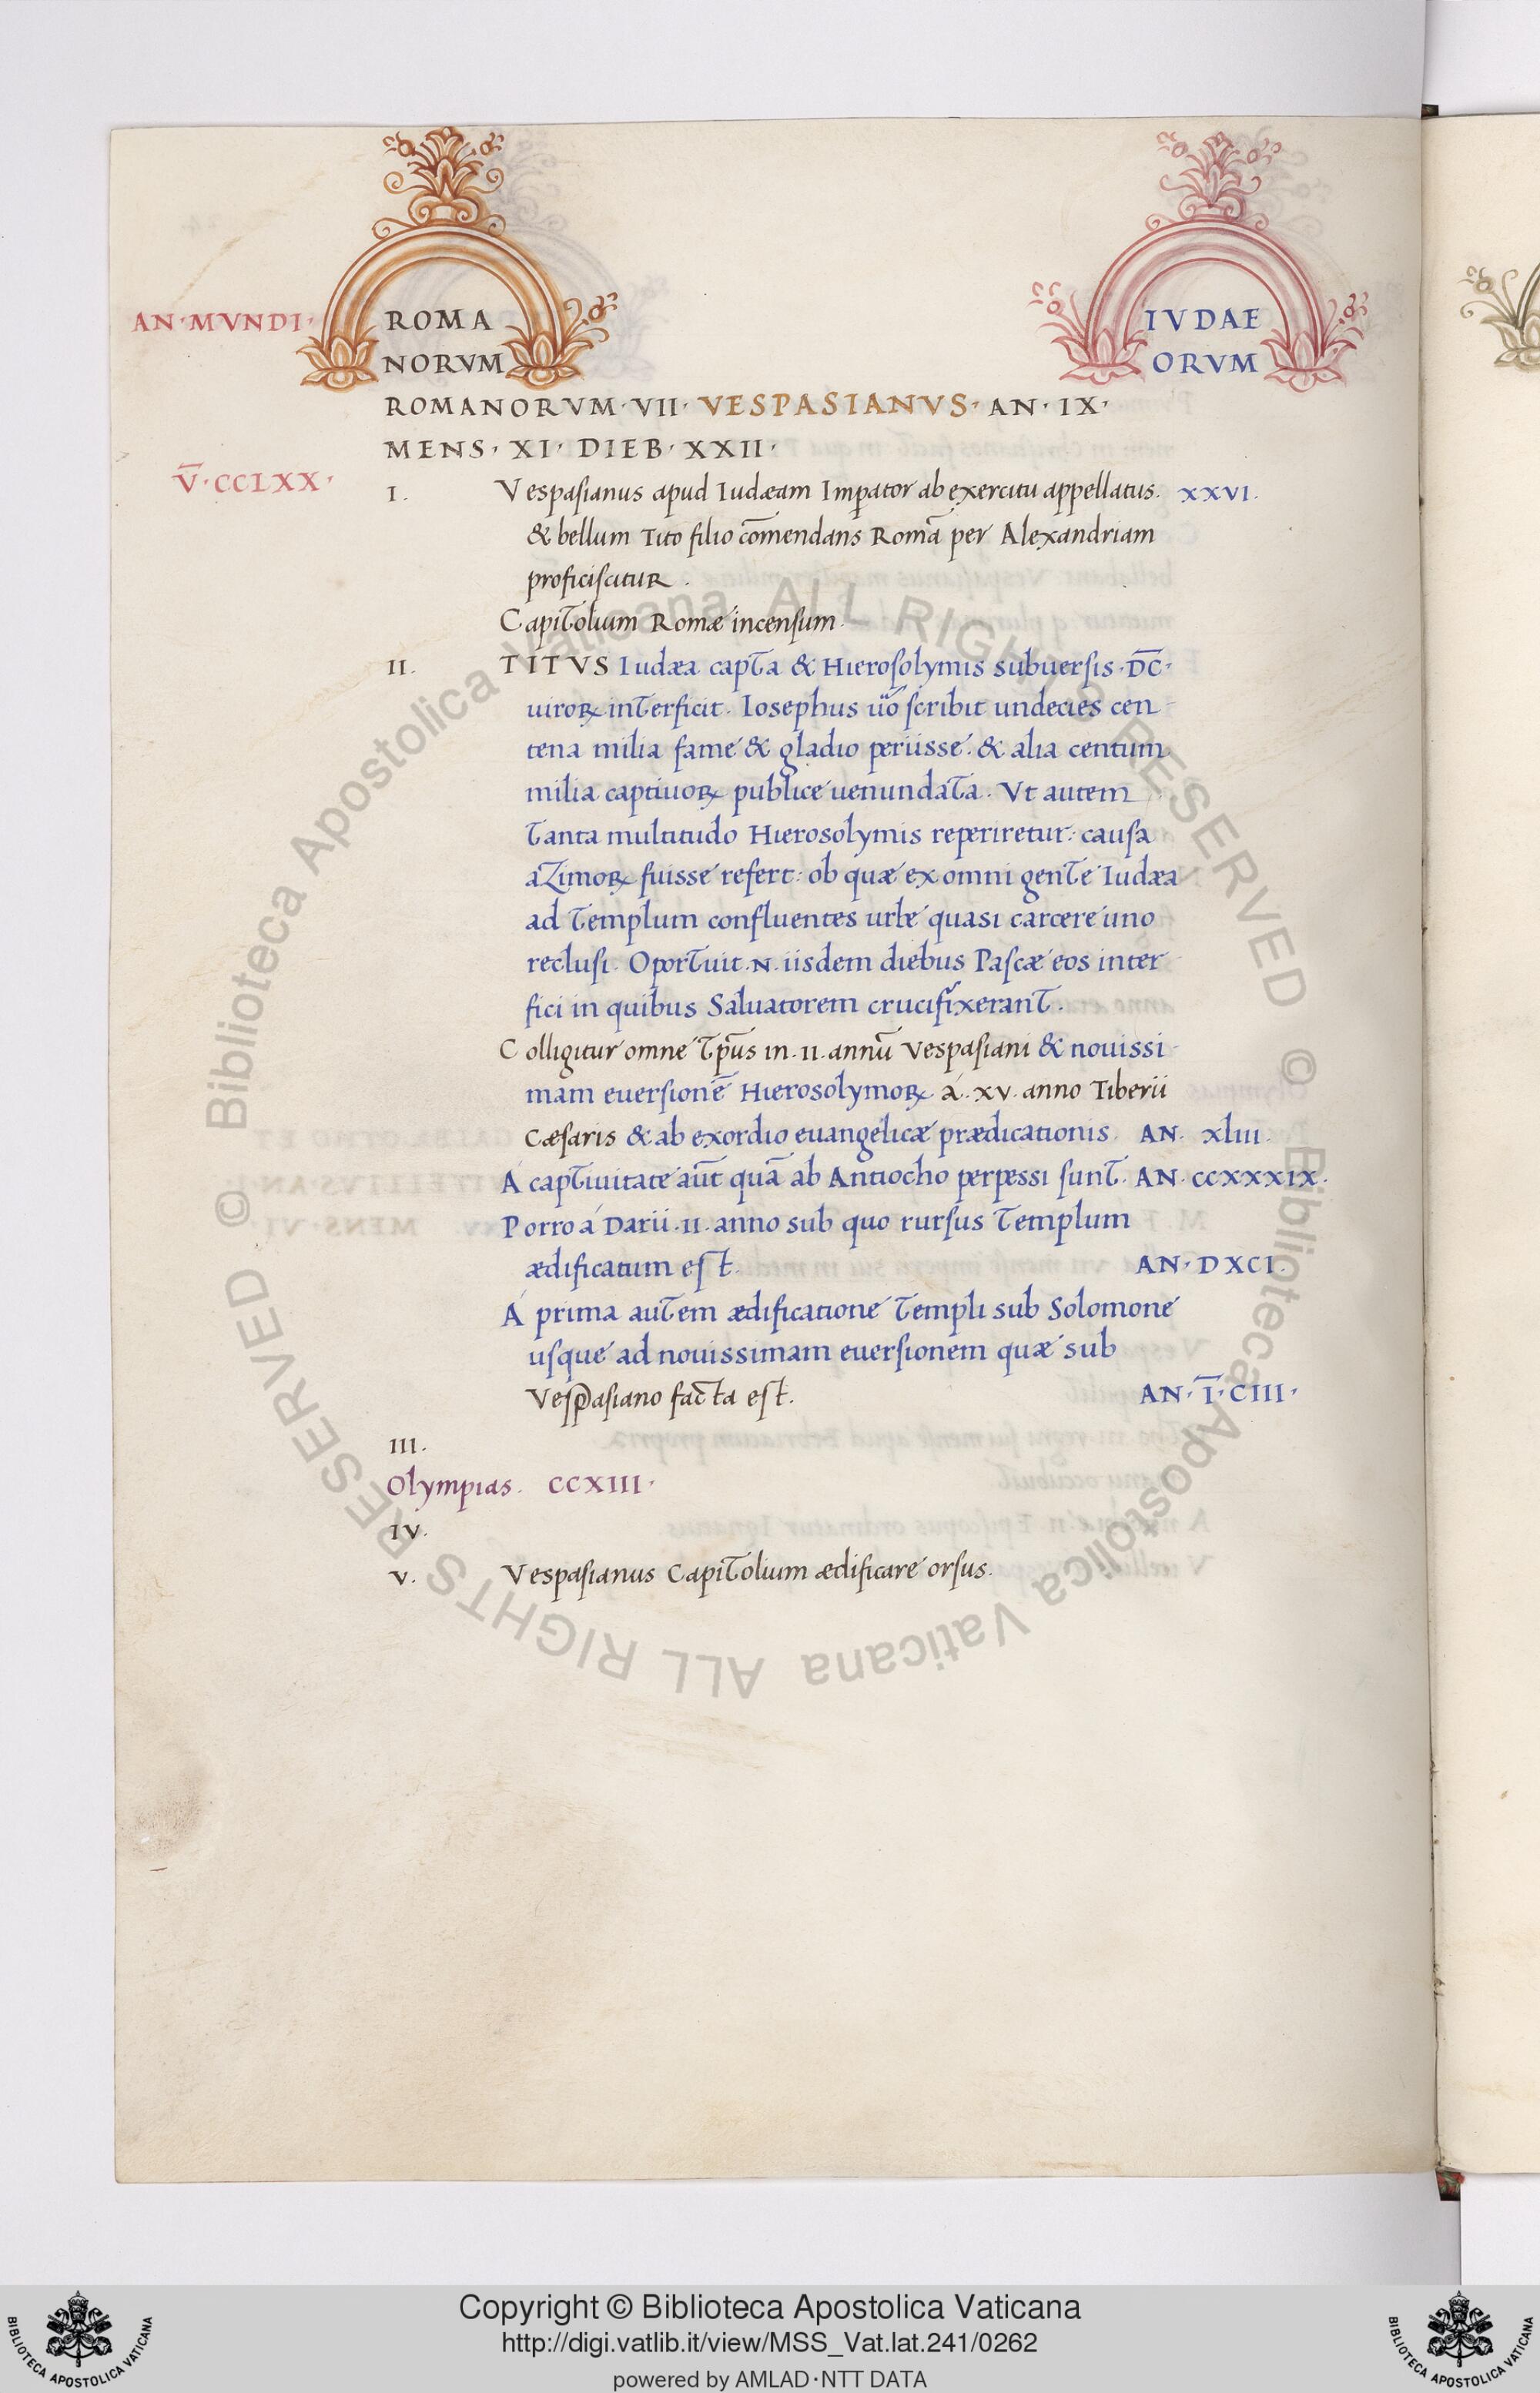 AN·MVNDI· ROMA IVDAE
NORVM ORVM
ROMANORVM·VII·VESPASIANVS·AN·IX·
MENS·XI·DIEB·XXII·
V̅·CCLXX· I. Vespasianus apud Iudæam Imꝑator ab exercitu appellatus. XXVI.
& bellum Tito filio com̄endans Romā per Alexandriam
proficiscitur.
Capitolium Romæ incensum.
II. TITVS Iudæa capta & Hierosolymis subuersis·D̅C̅·
uiroꝝ interficit. Iosephus uo᷑ scribit undecies cen
tena milia fame & gladio periisse. & alia centum
milia captiuoꝝ publice uenundata. Vt autem
tanta multitudo Hierosolymis reperiretur: causa
azimoꝝ fuisse refert: ob quæ ex omni gente Iudæa
ad templum confluentes urbe quasi carcere uno
reclusi. Oportuit.N.iisdem diebus Pascæ eos inter
fici in quibus Saluatorem crucifixerant.
Colligitur omne tp̄us in.II.annū Vespasiani & nouissi
mam euersionē Hierosolymoꝝ á.XV.anno Tiberii
Cæsaris & ab exordio euangelicæ prædicationis AN. xliii.
Á captiuitate aut̄ quā ab Antiocho perpessi sunt. AN·CCXXXIX.
Porro á Darii.II.anno sub quo rursus templum
ædificatum est. AN·DXCI.
Á prima autem ædificatione templi sub Solomone
usque ad nouissimam euersionem quæ sub
Vespasiano facta est. AN·I̅·CIII·
III.
Olympias. CCXIII·
IV.
V. Vespasianus Capitolium ædificare orsus.
© Biblioteca Apostolica Vaticana ALL RIGHTS RESERVED © Biblioteca Apostolica Vaticana ALL RIGHTS RESERVED
Copyright © Biblioteca Apostolica Vaticana
http://digi.vatlib.it/view/MSS_Vat.lat.241/0262
powered by AMLAD·NTT DATA
BIBLIOTECA APOSTOLICA VATICANA
BIBLIOTECA APOSTOLICA VATICANA